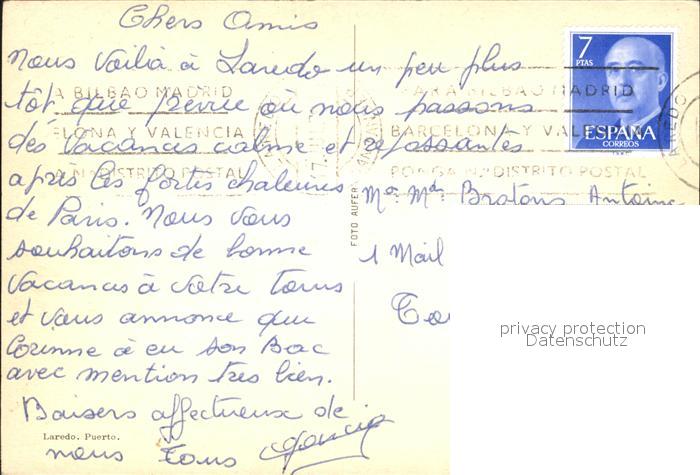 Chers Amis
Nous Voilià à Laredo un peu plus
tôt que prevue où nous passons
dés vacances calme et reposantes
après les fortes chaleures
de Paris. Nous Vous
souhaitons de bonne
vacances à votre tours
et vous annonce que
Corinne à eu son Bac
avec mention tres bien.
Baisers affectueux de
nous tous
Laredo. Puerto.
FOTO AUFER
7
PTAS
ESPAÑA
CORREOS
PARA BILBAO MADRID
BARCELONA Y VALENCIA
PONGA Nº DISTRITO POSTAL
A BILBAO MADRID
ELONA Y VALENCIA
A Nº DISTRITO POSTAL
Mr Md Brotons Antoine
1 Mail
privacy protection
Datenschutz